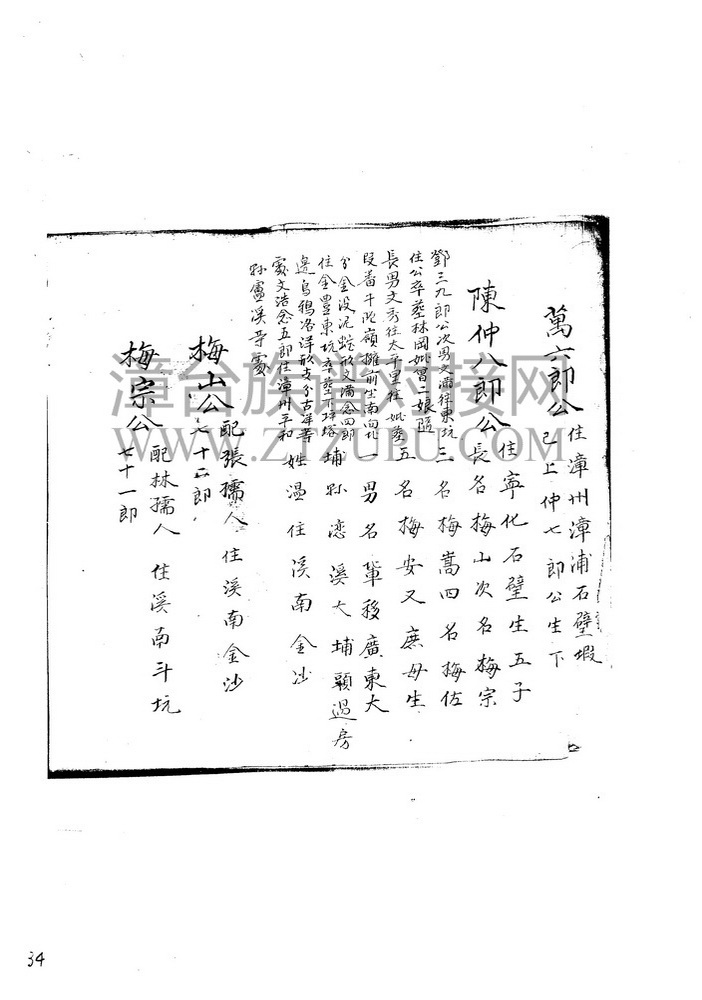 萬六郎公
住漳州漳浦石壁塅
己上仲七郎公生下
陳仲八郎公
住寧化石壁生五子
長名梅山次名梅宗
三名梅嵩四名梅佐
五名梅安又庶母生
一男名輦移廣東大
埔縣恋溪大埔頭過房
姓溫住溪南金沙
鄧三九郎公次男文滿祥東坑
住公卒葬林岡妣曾二娘隨
長男文秀住太平里在妣葬
段番牛 嶺 前坐南向北
分金設 蛇形文滿念四郎
住金豐東坑卒葬下坪塔
邊烏鴉落洋形支分古祥等
處文浩念五郎住漳州平和
縣盧溪等處
梅山公
配張孺人住溪南金沙
七十 郎
梅宗公
配林孺人住溪南斗坑
七十一郎
漳台族谱对接网
WWW.ZTZUPU.COM
34